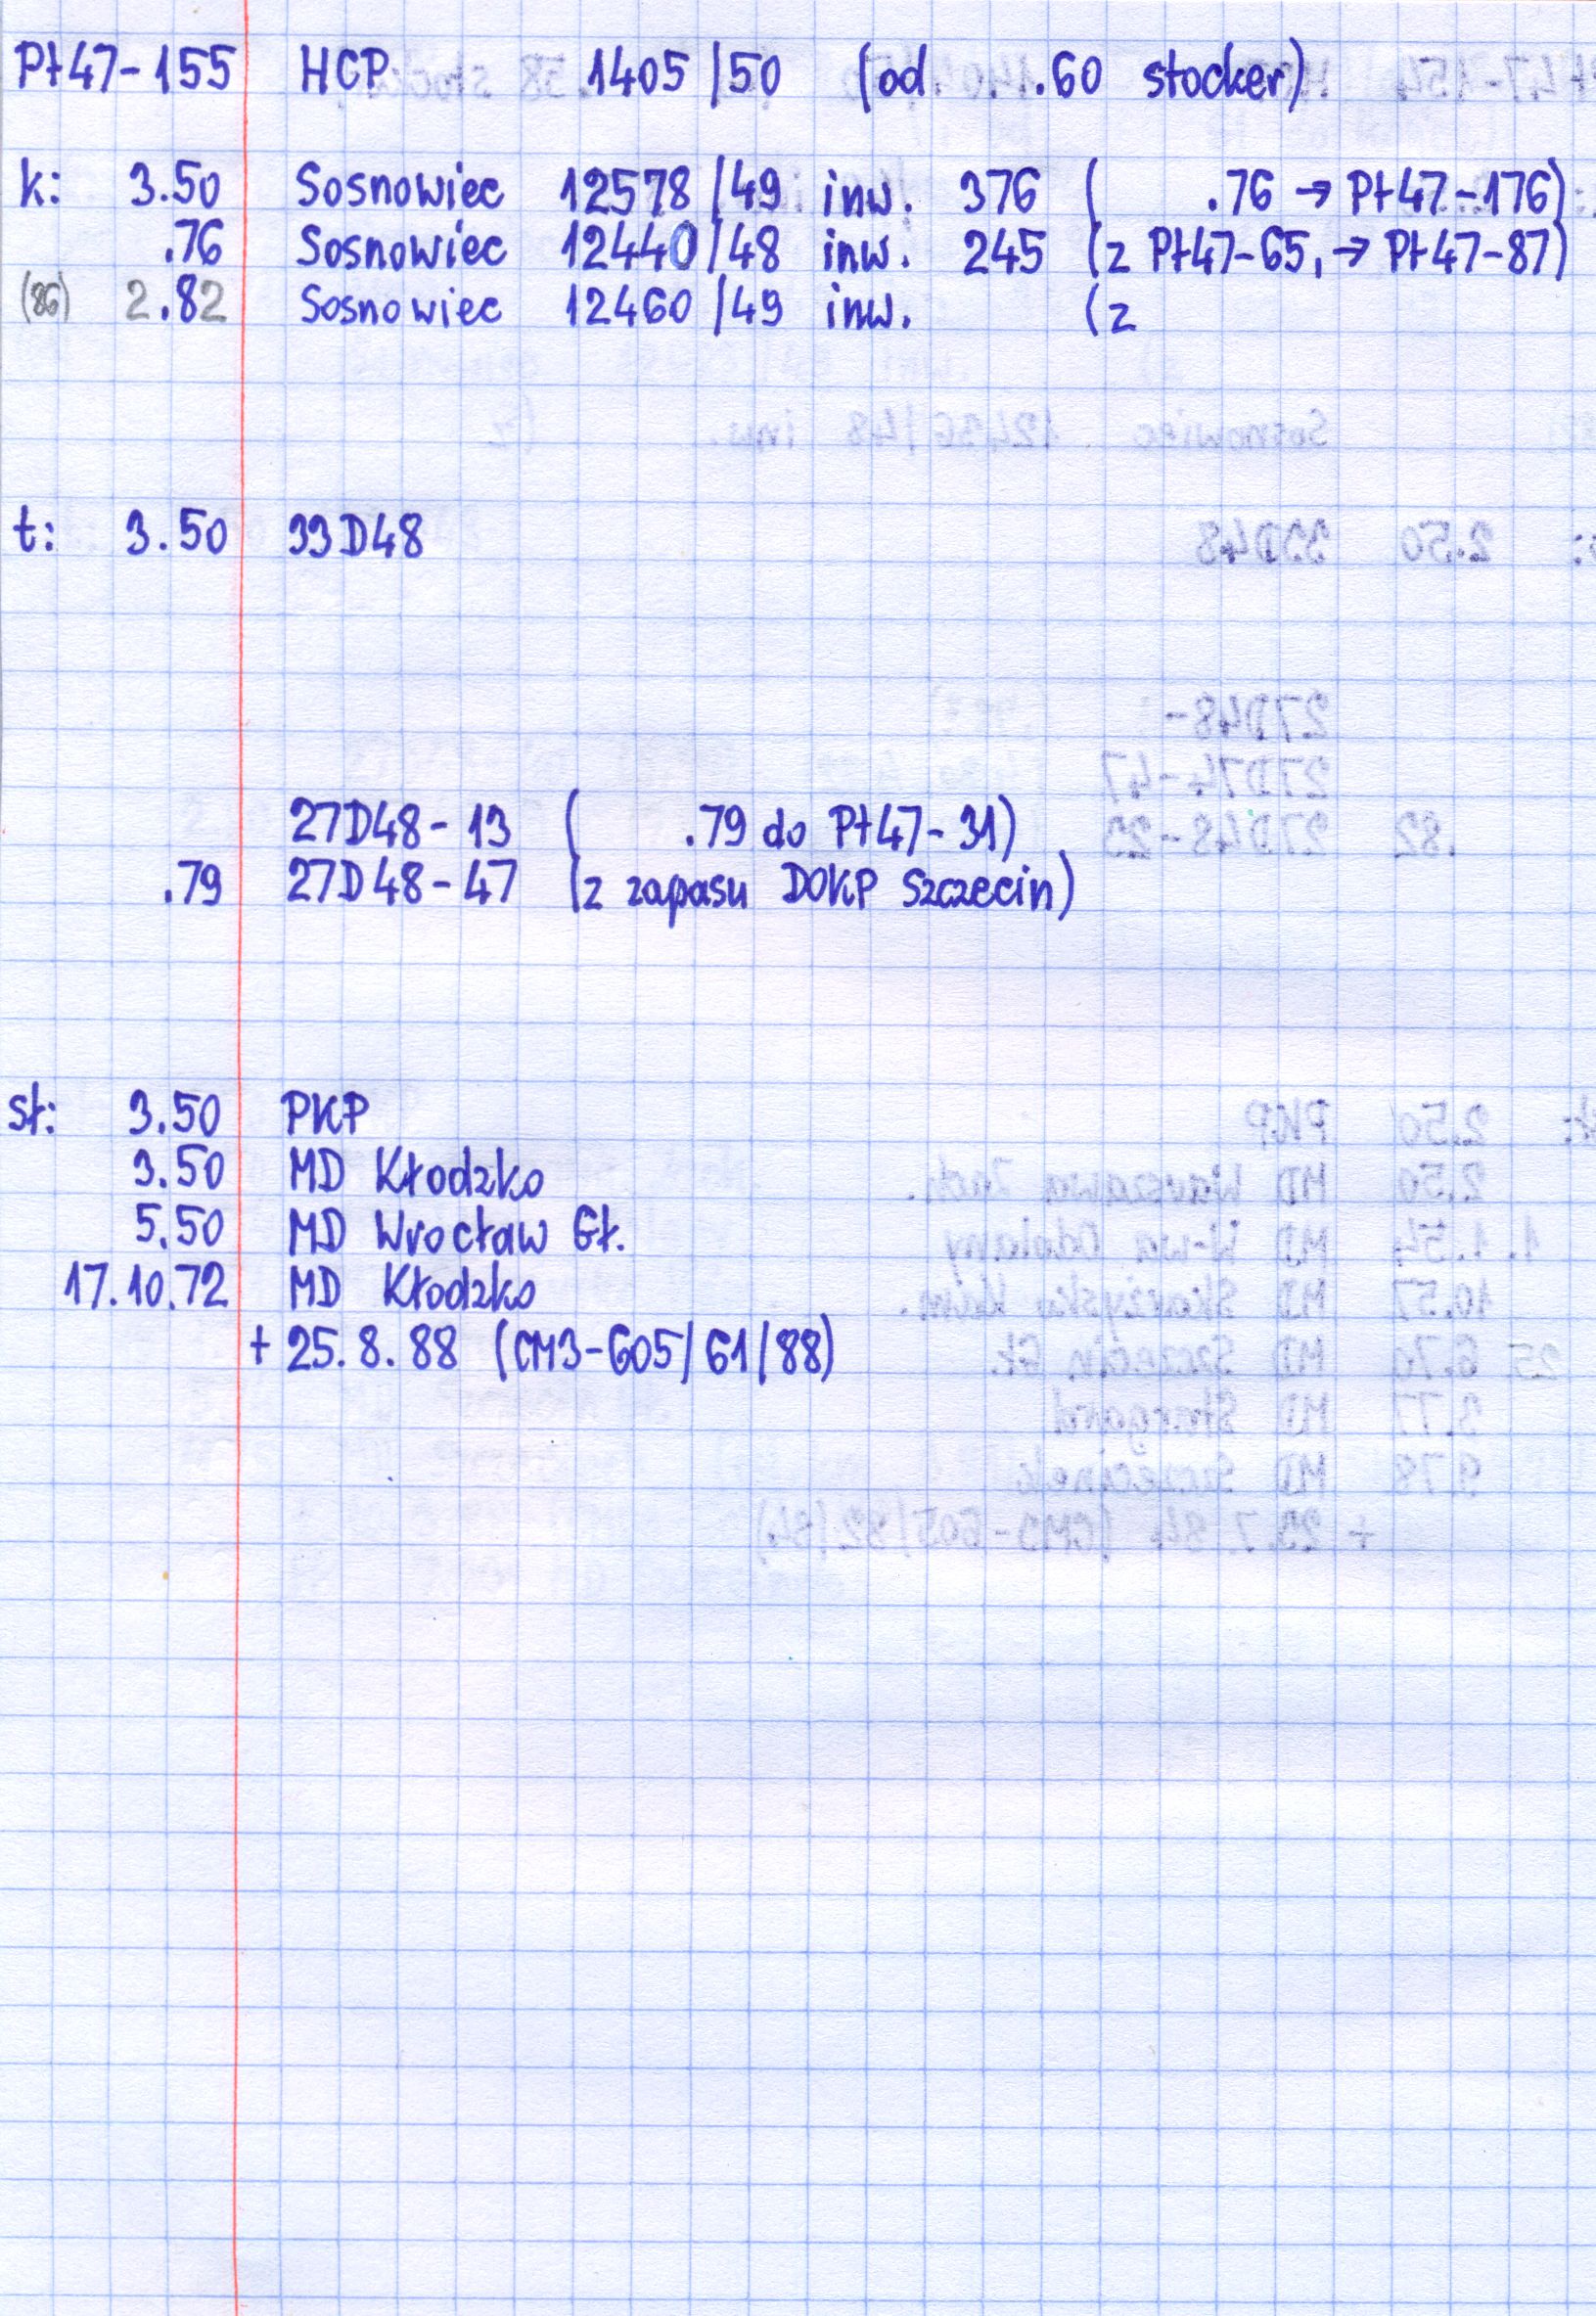 Pt47-155 HCP 1405/50 (od .60 stocker)
k: 3.50 Sosnowiec 12578/49 inw. 376 ( .76 → Pt47-176)
.76 Sosnowiec 12440/48 inw. 245 (z Pt47-65, → Pt47-87)
(86) 2.82 Sosnowiec 12460/49 inw. (z
t: 3.50 33D48
27D48-13 ( .79 do Pt47-31)
.79 27D48-47 (z zapasu DOKP Szczecin)
sł: 3.50 PKP
3.50 MD Kłodzko
5.50 MD Wrocław Gł.
17.10.72 MD Kłodzko
+ 25.8.88 (CM3-605/61/88)